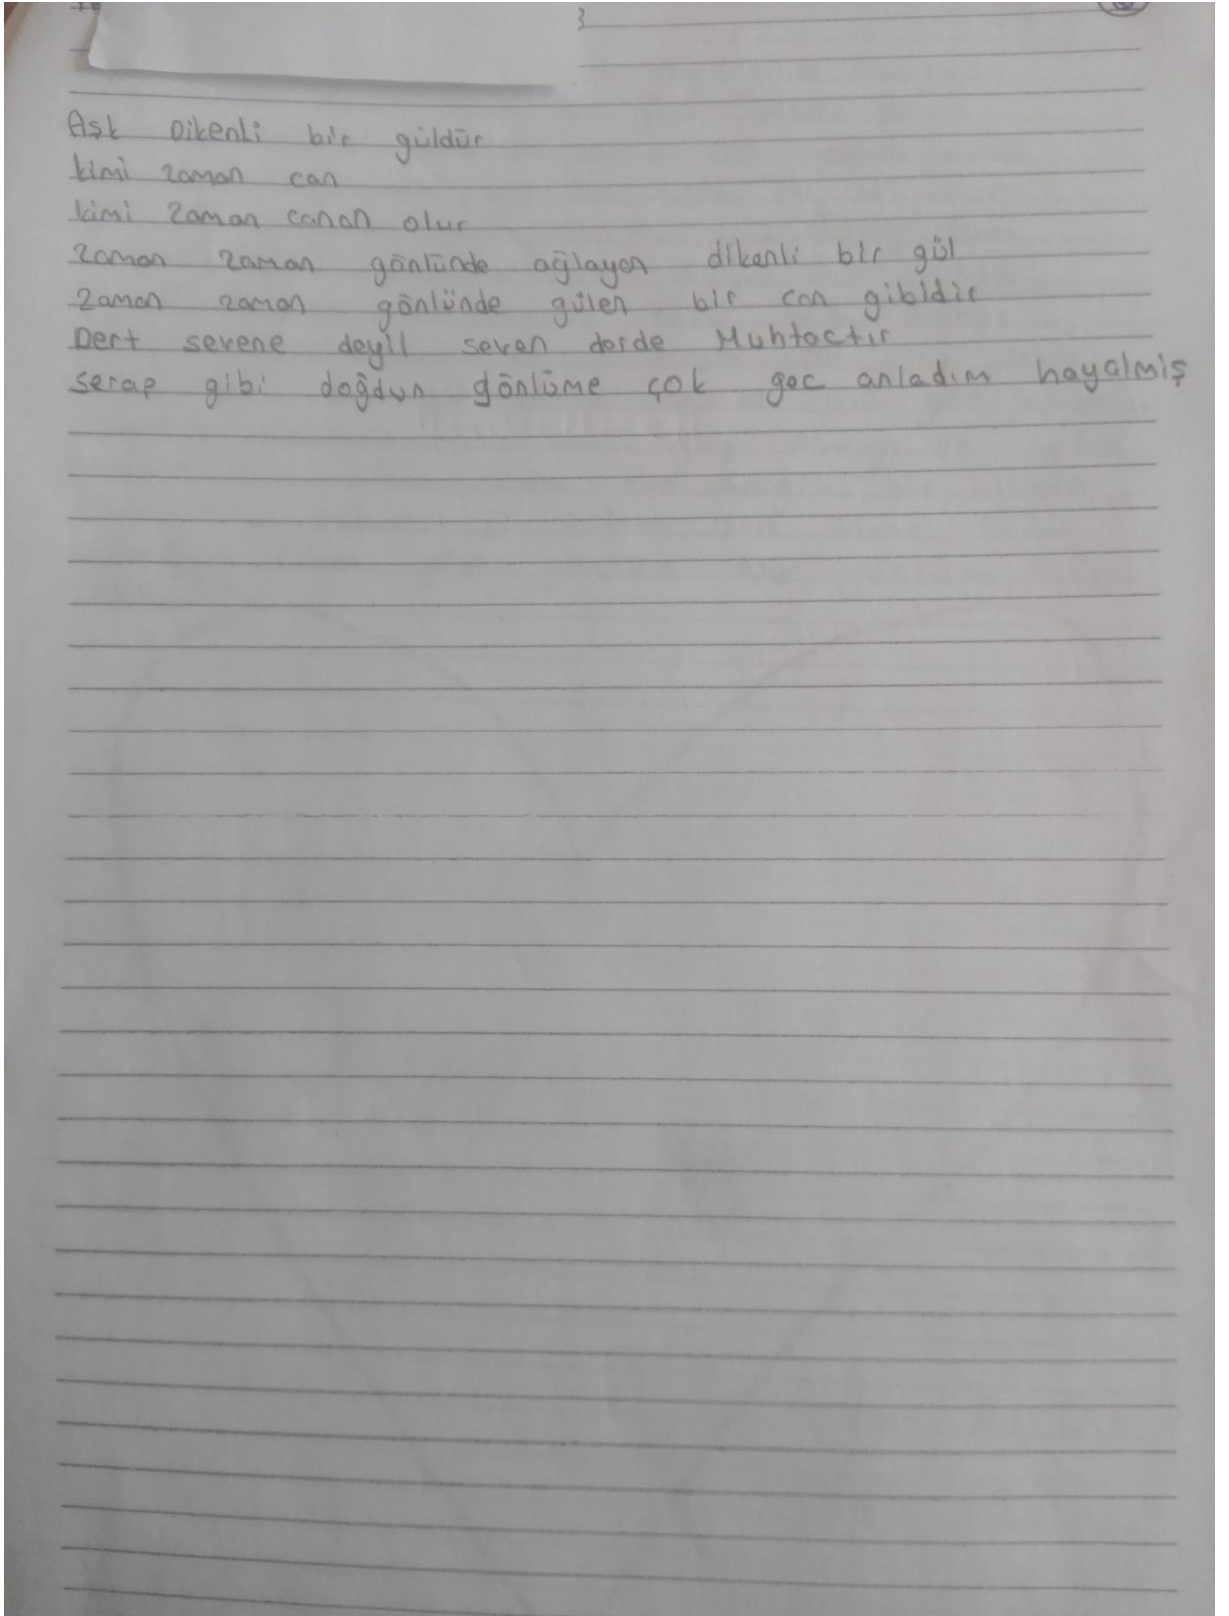 3
Aşk Dikenli bir güldür
kimi zaman can
kimi zaman canan olur
zaman zaman gönlünde ağlayan dikenli bir gül
zaman zaman gönlünde gülen bir can gibidir
Dert sevene deyil seven derde Muhtactır
serap gibi doğdun gönlüme çok gec anladım hayalmiş